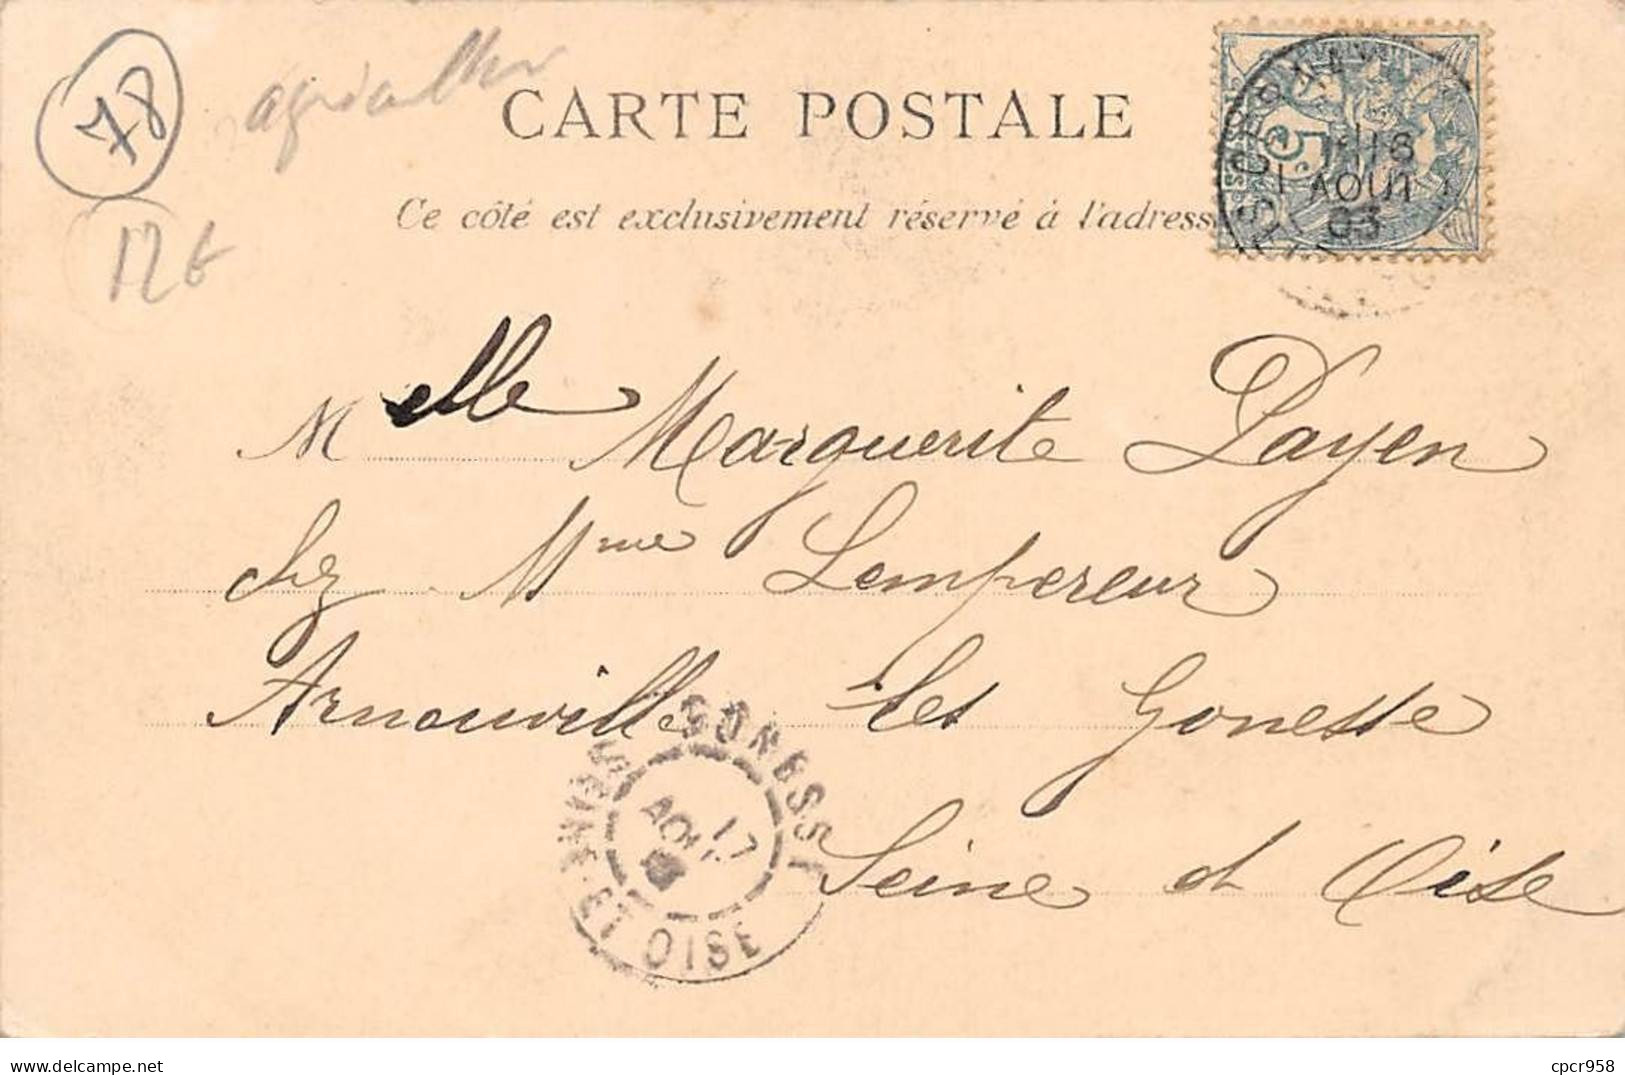 78
12€
CARTE POSTALE
Ce côté est exclusivement réservé à l'adresse
5c
16
AOUT
03
Melle Marguerite Payen
chez Mme Lempereur
Arnouville-les Gonesse
Seine et Oise
GONESSE
17
AOUT
SEINE-ET-OISE
cpcr958